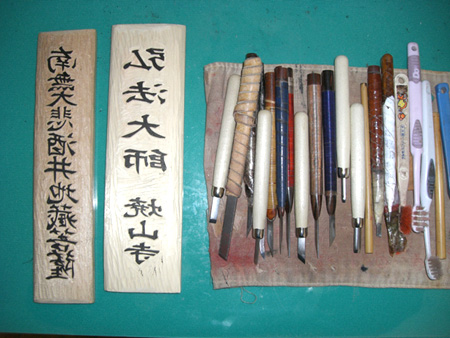 弘法大師 焼山寺
南無大悲酒井地蔵菩薩